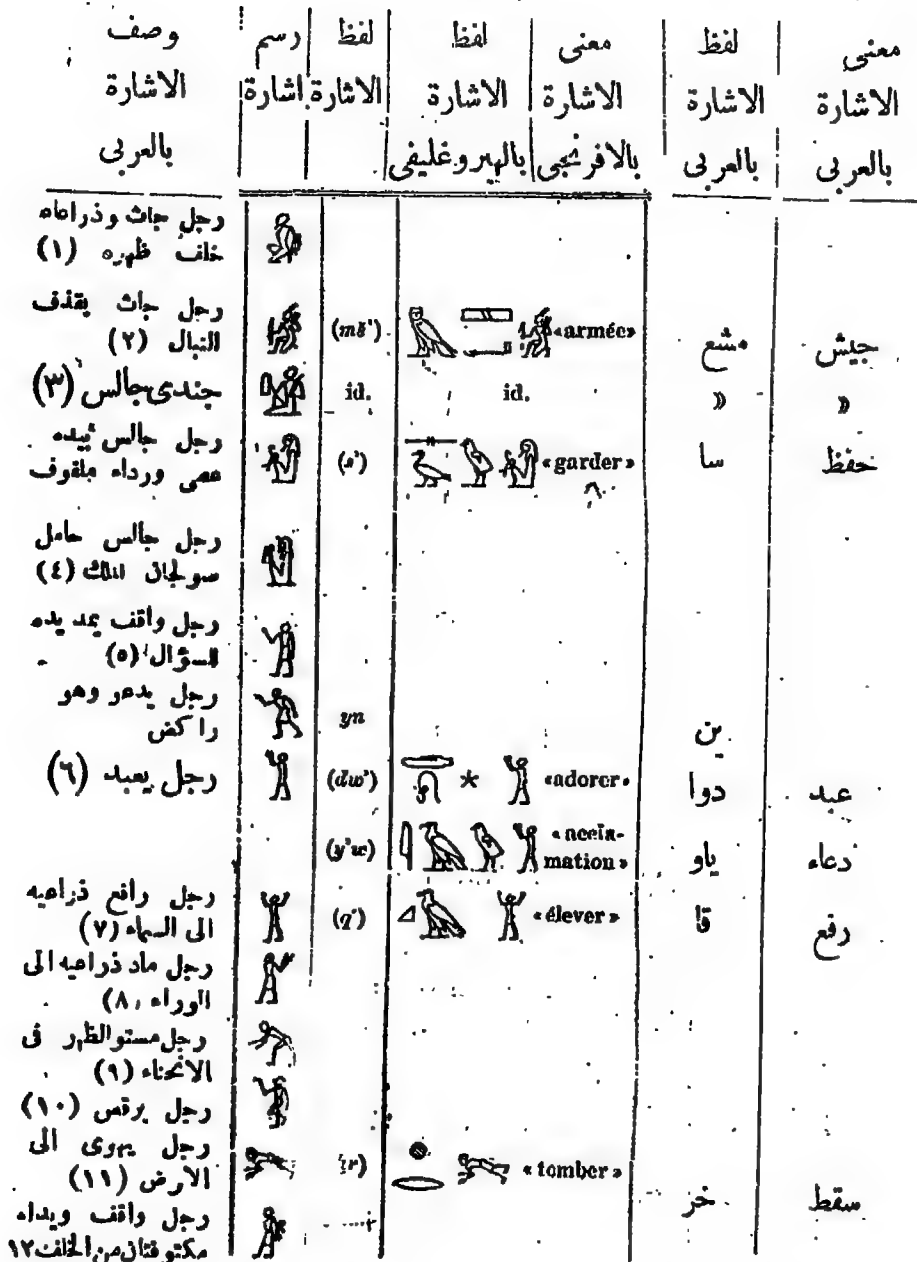 وصف | رسم | لفظ | لفظ | معنى | لفظ | معنى
الاشارة | اشارة | الاشارة | الاشارة | الاشارة | الاشارة | الاشارة
بالعربى | بالهيروغليفى | بالافرنجى | بالعربى | بالعربى
رجل جاث وذراعاه
خلف ظهره (١)
رجل جاث يقذف
النبال (٢) | (mš') | «armée» | مشع | جيش
جندى جالس (٣) | id. | id. | » | »
رجل جالس بيده
عصى ورداء ملفوف | (s') | «garder» | سا | حفظ
رجل جالس حامل
سولجان الملك (٤)
رجل واقف يمد يده
للسؤال (٥)
رجل يدعو وهو
راكض | yn | ين
رجل يعبد (٦) | (dw') | «adorer» | دوا | عبد
(y'w) | «accla-
mation» | ياو | دعاء
رجل رافع ذراعيه
الى السماء (٧) | (q') | «élever» | قا | رفع
رجل ماد ذراعيه الى
الوراء (٨)
رجل مستو الظهر فى
الانحناء (٩)
رجل يرقص (١٠)
رجل يهوى الى
الارض (١١) | «tomber» | خر | سقط
رجل واقف ويداه
مكتوفتان من الخلف ١٢